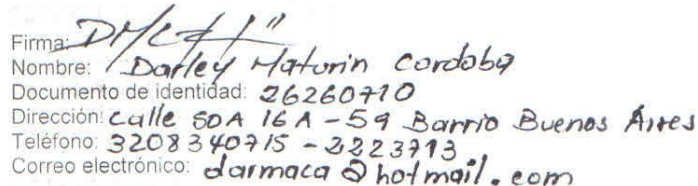 Firma: DMC
Nombre: Darley Maturin Cordoba
Documento de identidad: 26260710
Dirección: calle 50A 16A - 59 Barrio Buenos Aires
Teléfono: 3208340715 - 2223713
Correo electrónico: darmaca@hotmail.com